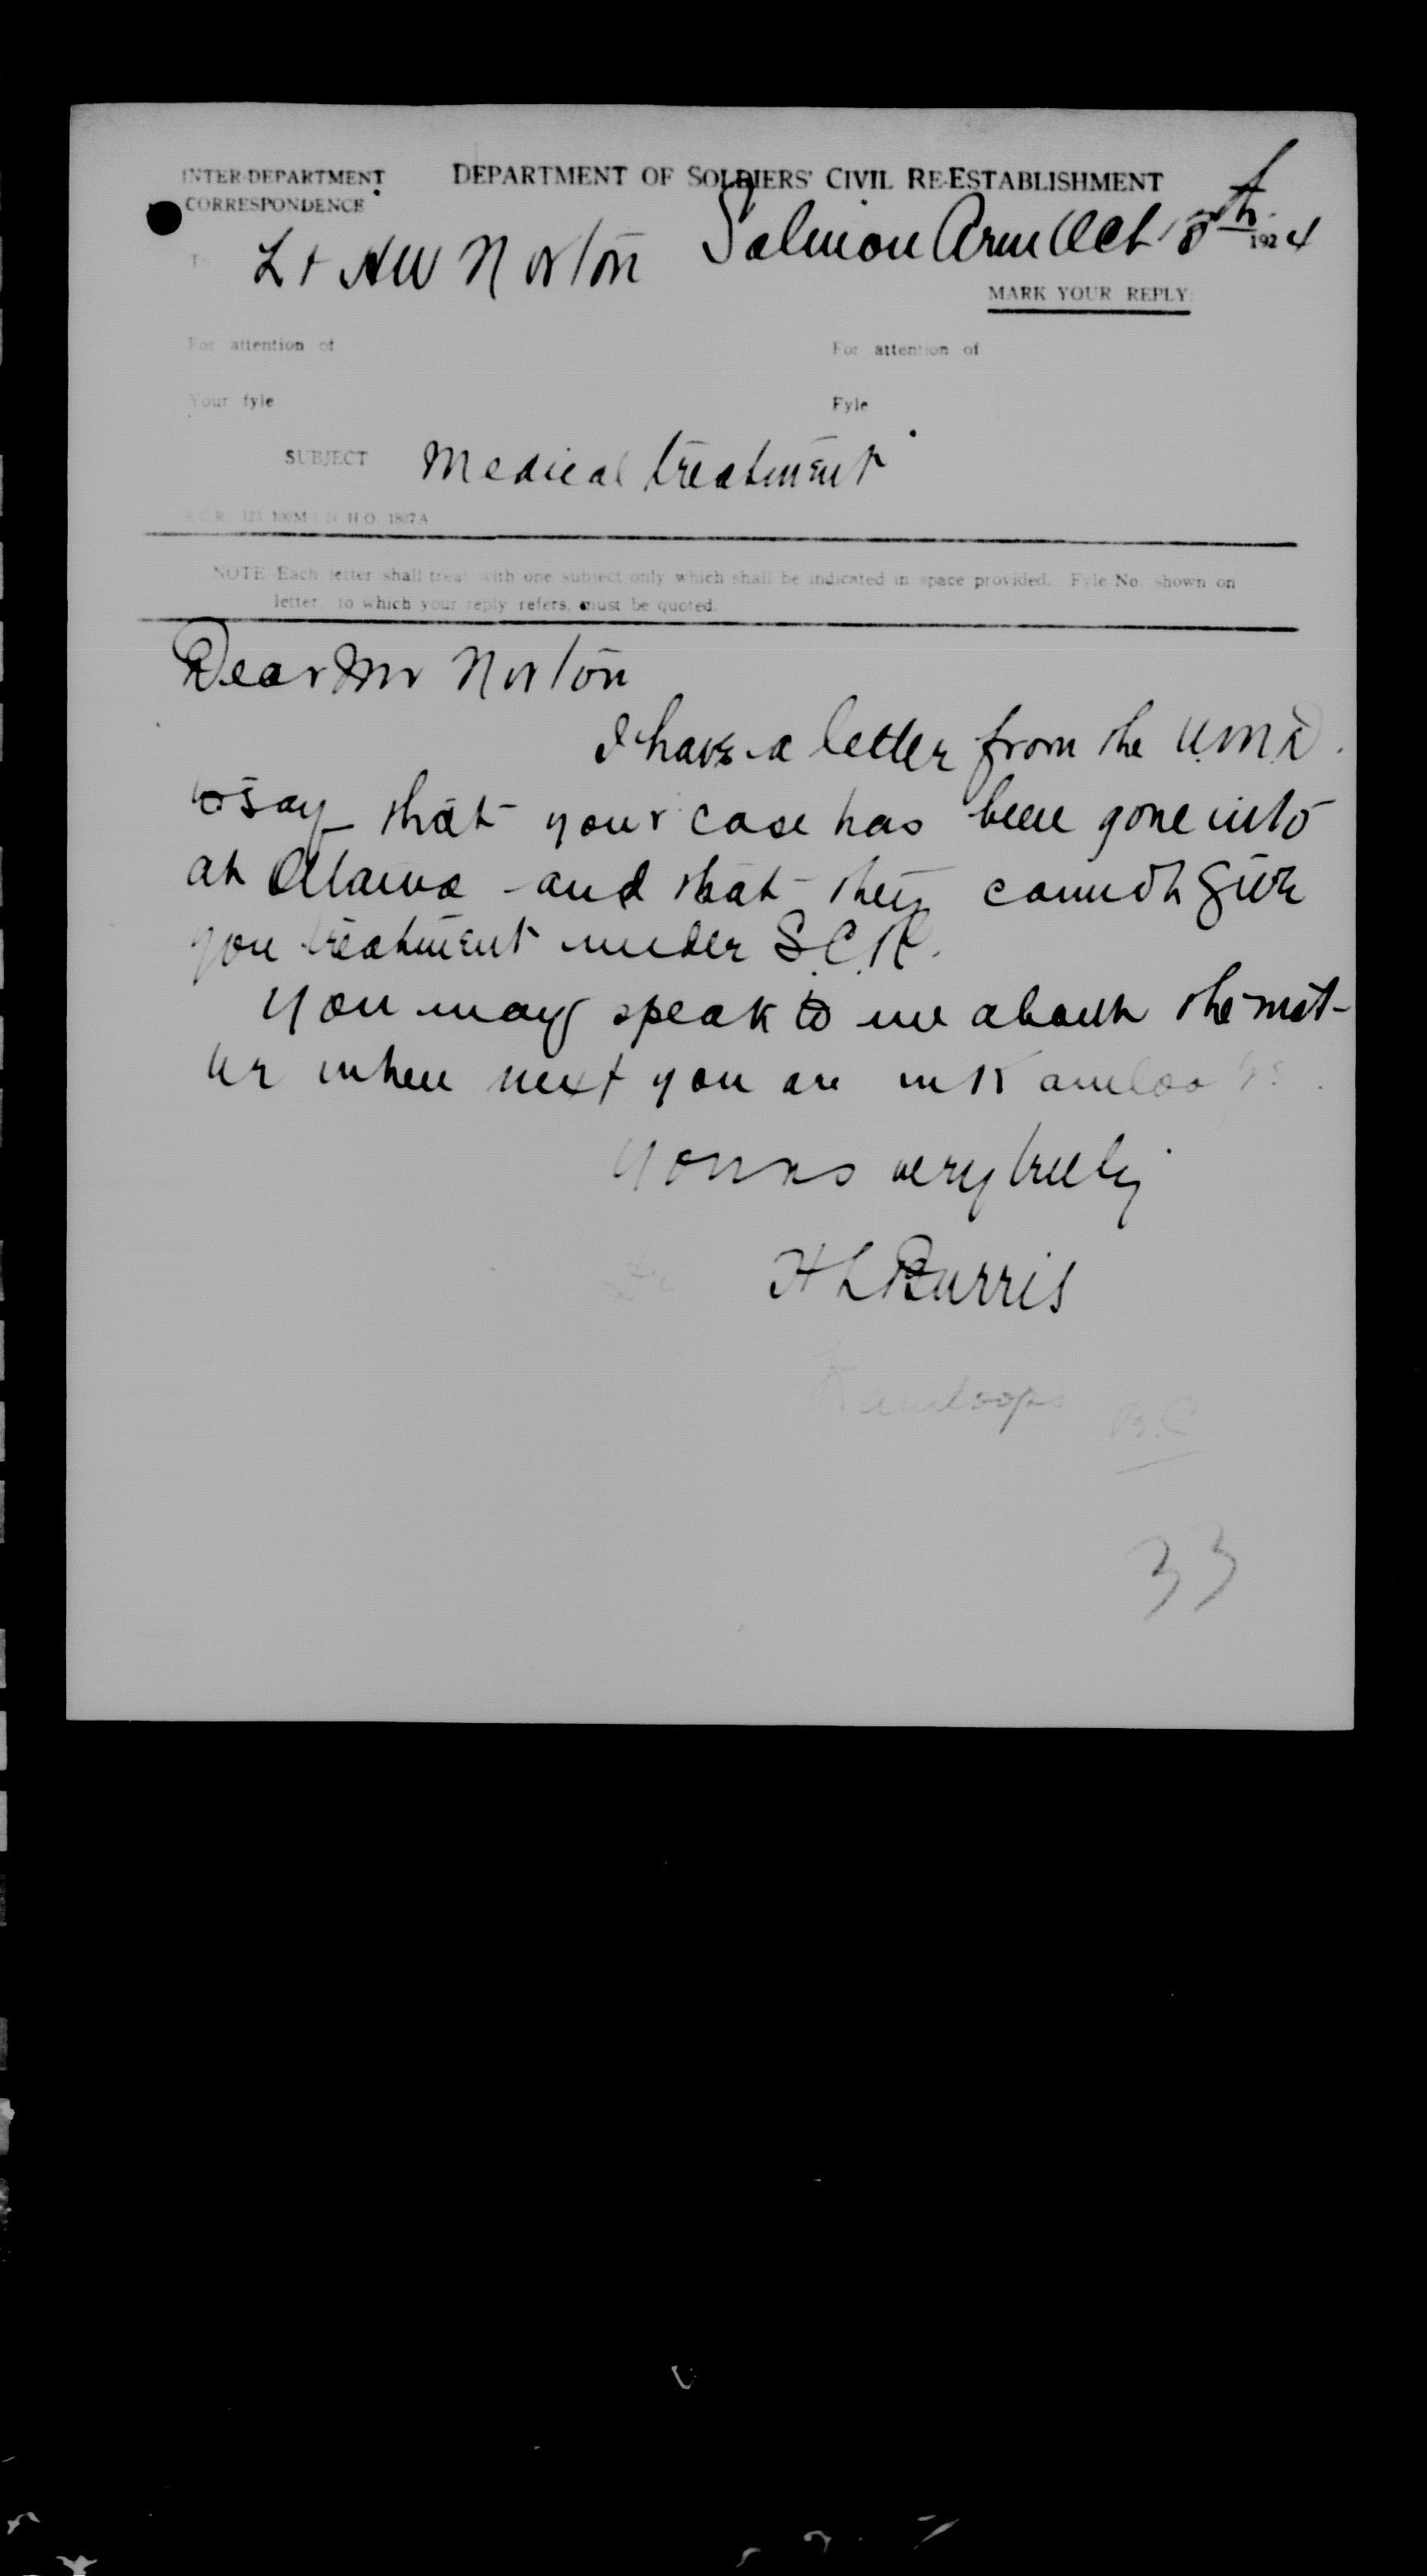 INTER-DEPARTMENT
CORRESPONDENCE
DEPARTMENT OF SOLDIERS' CIVIL RE-ESTABLISHMENT
To Lt AW Norton
Salmon Arm Oct 8th 1924
MARK YOUR REPLY:
For attention of
For attention of
Your fyle
Fyle
SUBJECT Medical treatment
H.Q. 1807A
NOTE Each letter shall treat with one subject only which shall be indicated in space provided. Fyle No. shown on
letter, to which your reply refers, must be quoted.
Dear Mr Norton
I have a letter from the U.M.D.
to say that your case has been gone into
at Ottawa and that they cannot give
you treatment under S.C.R.
You may speak to me about the mat-
ter when next you are in Kamloops.
Yours very truly
H L Burris
Kamloops B.C.
33